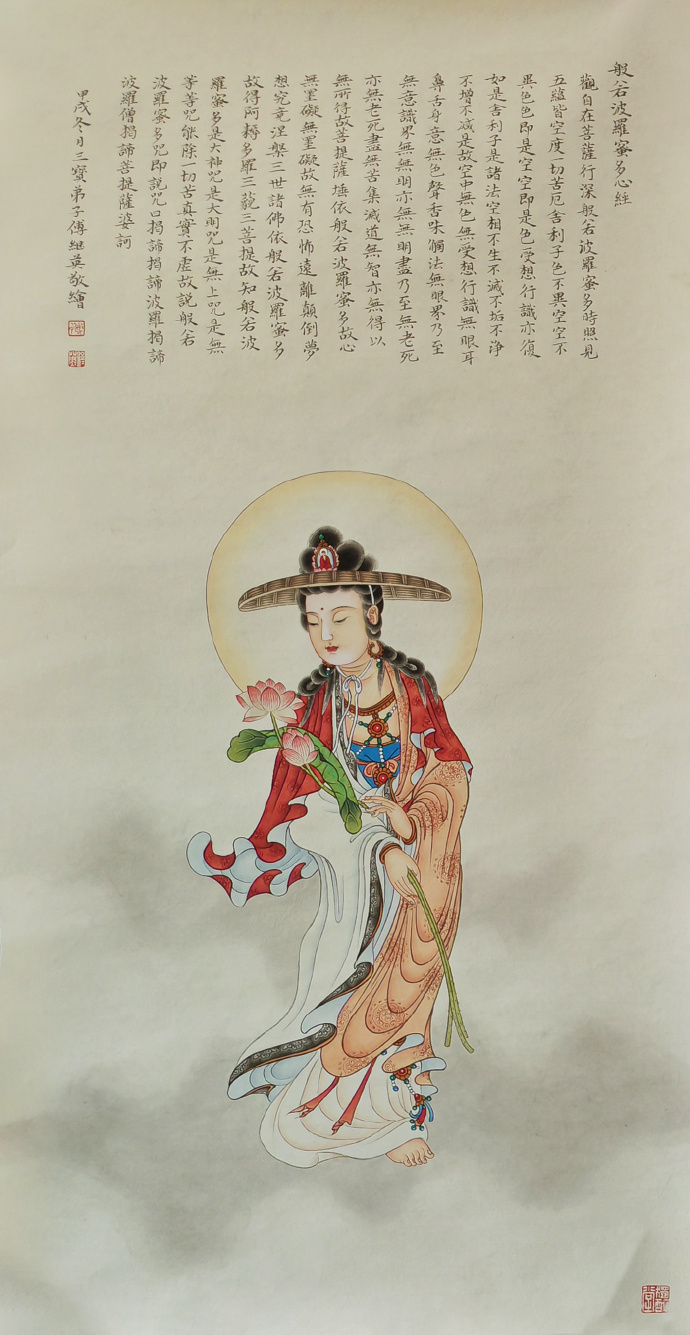 般若波羅蜜多心經
觀自在菩薩行深般若波羅蜜多時照見
五蘊皆空度一切苦厄舎利子色不異空空不
異色色即是空空即是色受想行識亦復
如是舎利子是諸法空相不生不滅不垢不淨
不增不減是故空中無色無受想行識無眼耳
鼻舌身意無色聲香味觸法無眼界乃至
無意識界無無明亦無無明盡乃至無老死
亦無老死盡無苦集滅道無智亦無得以
無所得故菩提薩埵依般若波羅蜜多故心
無罣礙無罣礙故無有恐怖遠離顛倒夢
想究竟涅槃三世諸佛依般若波羅蜜多
故得阿耨多羅三藐三菩提故知般若波
羅蜜多是大神咒是大明咒是無上咒是無
等等咒能除一切苦真實不虛故說般若
波羅蜜多咒即說咒曰揭諦揭諦波羅揭諦
波羅僧揭諦菩提薩婆訶
甲戌冬月三寶弟子傅繼英敬繪